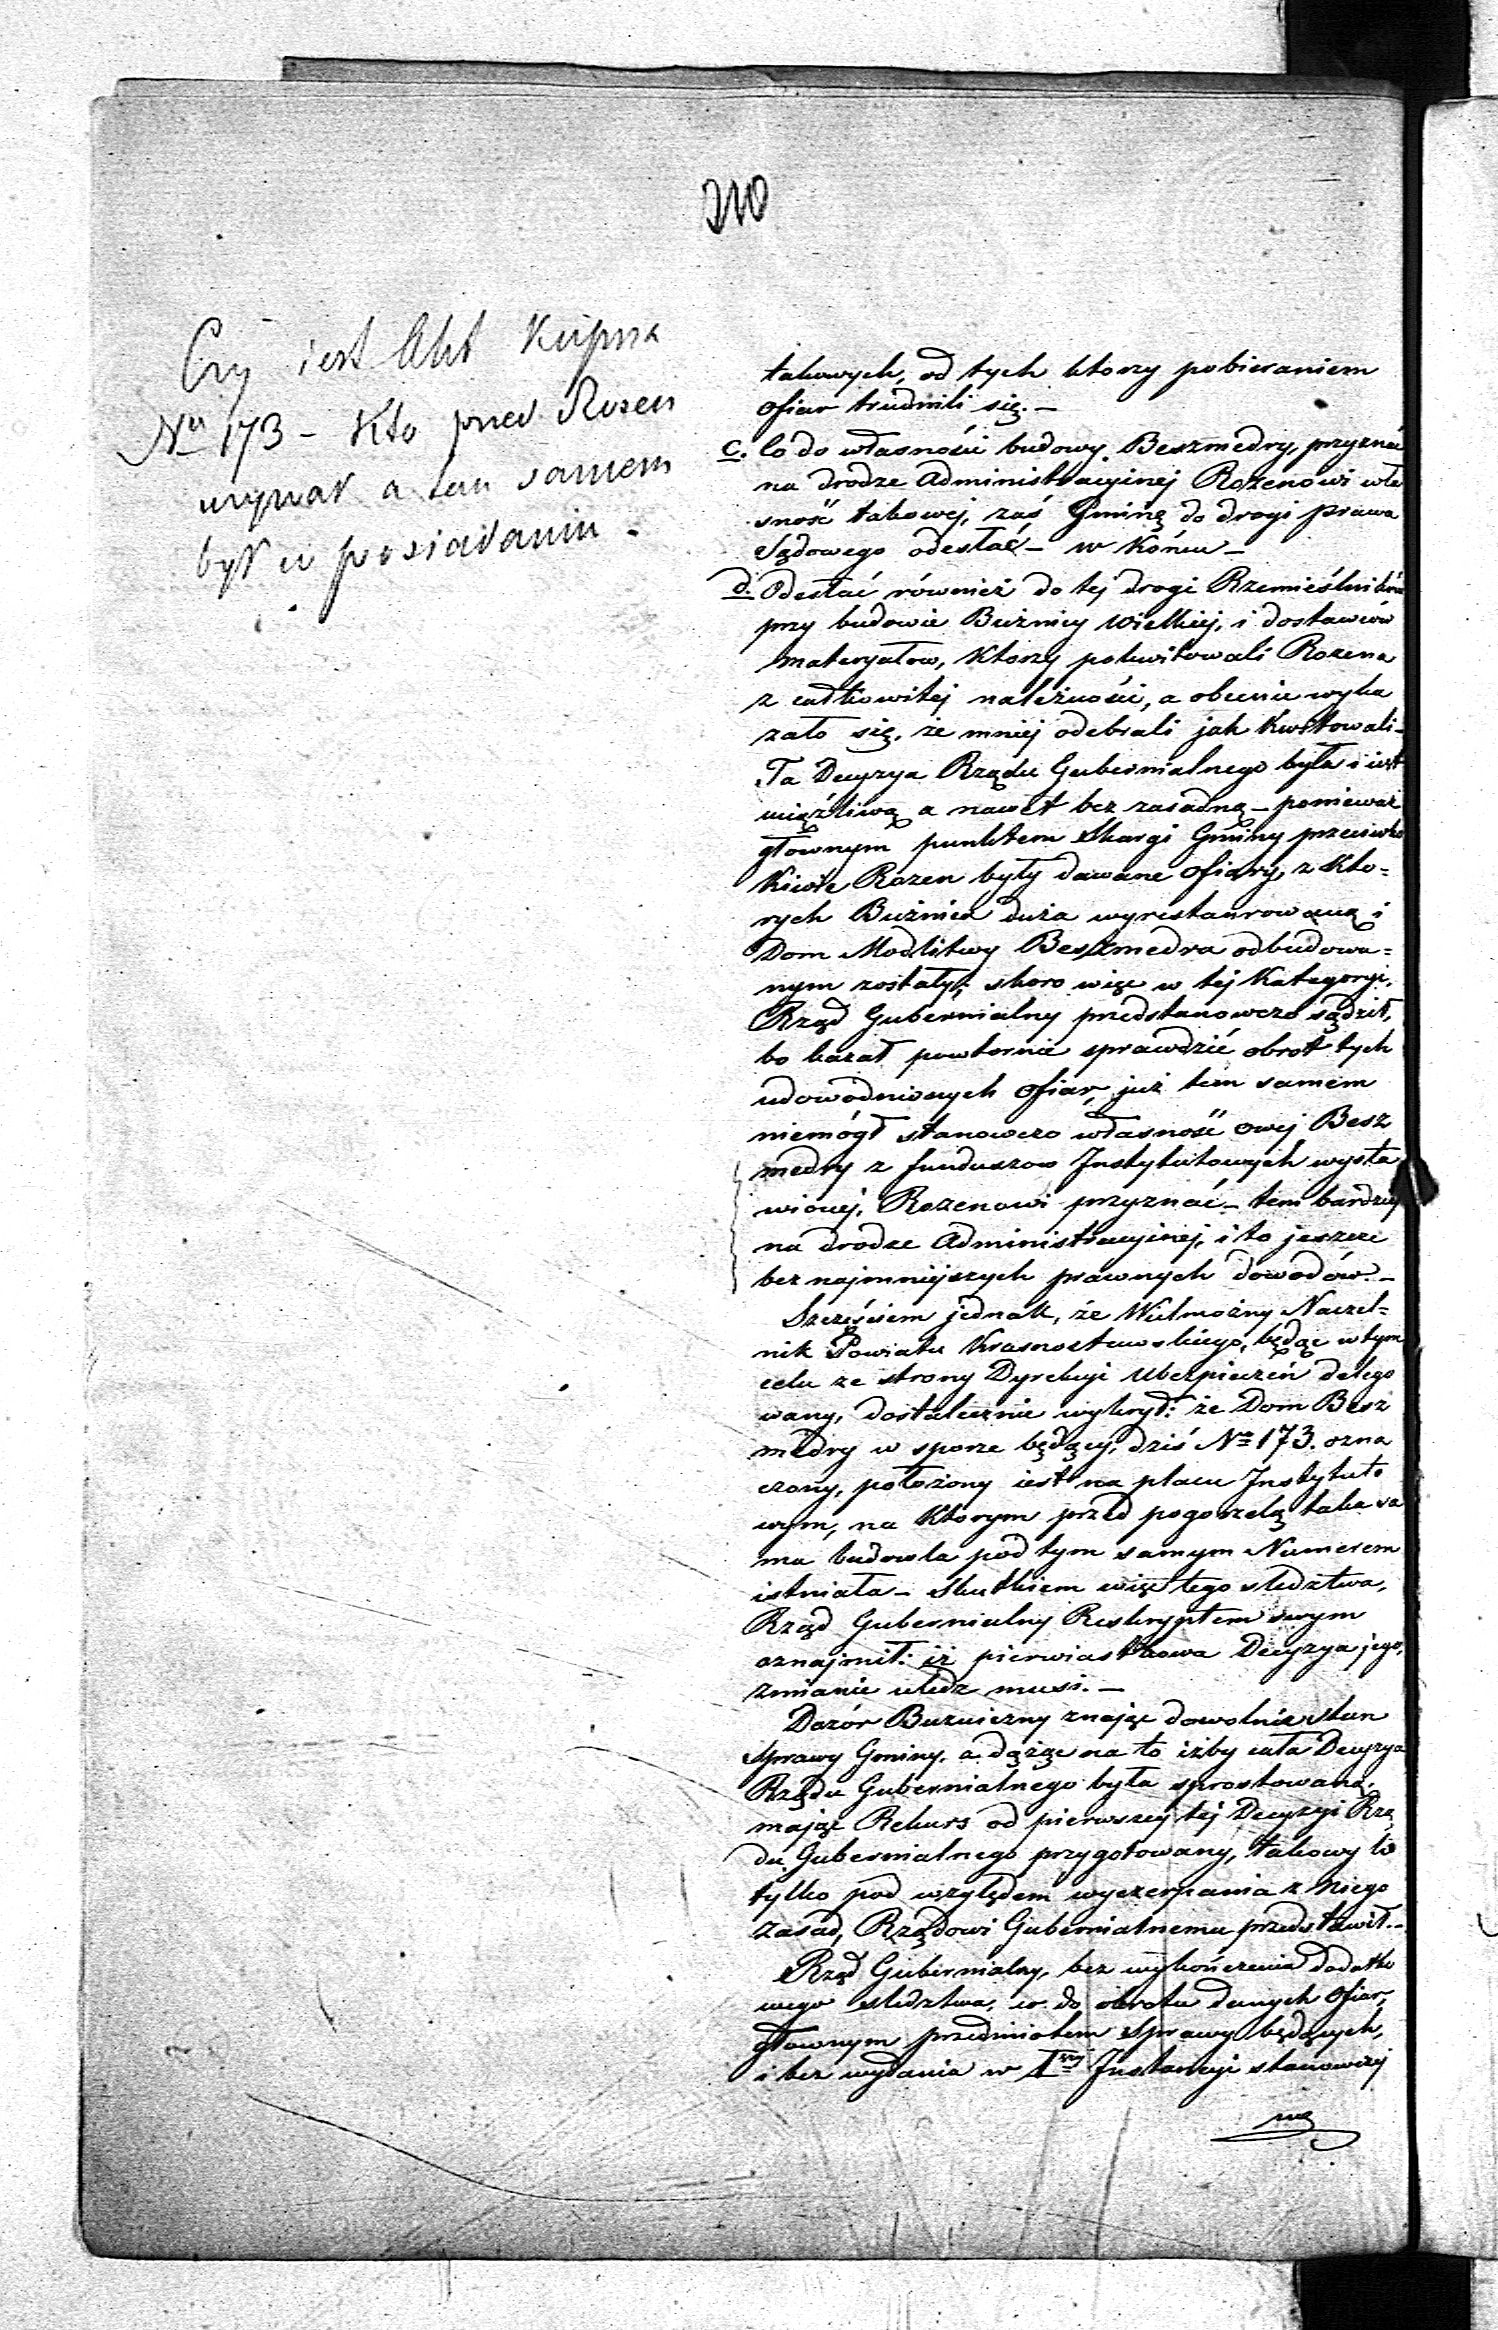 210
Czy jest Akt Kupna
No 173 - Kto przed Rozen
używał a tem samem
był w posiadaniu.
takowych, od tych ktorzy pobieraniem
ofiar trudnili się. —
c. Co do własności budowy Beszmedry, przyznać
na drodze Administracyjnej Rozenowi wła
sność takowej, zaś Gminę do drogi prawa
Sądowego odesłać — w Końcu —
d. Odesłać również do tej drogi Rzemieślników
przy budowie Buźnicy Wielkiej, i dostawców
materyałow, Ktorzy pokwitowali Rozena
z całkowitej należności, a obecnie wyka
zało się, że mniej odebrali jak Kwitowali —
Ta Decyzya Rządu Gubernialnego była i iest
uciążliwą a nawet bez zasadną — ponieważ
głownym punktem Skargi Gminy przeciwko
Kiwie Rozen były dawane ofiary, z Kto=
rych Buźnica duża wyrestaurowaną i
Dom Modlitwy Beszmedra odbudowa=
nym zostały; skoro więc w tej Kategoryi,
Rząd Gubernialny przedstanowczo sądził,
bo kazał powtornie sprawdzić obrot tych
udowodnionych ofiar, już tem samem
niemógł stanowczo własność owej Besz
medry z funduszow Instytutowych wysta
wionej, Rozenowi przyznać — tem bardziej
na drodze Administracyjnej, i to jeszcze
bez najmniejszych prawnych dowodów. —
Szczęściem jednak, że Wielmożny Naczel=
nik Powiatu Krasnostawskiego, będąc w tym
celu ze strony Dyrekcyi Ubezpieczeń delego
wany, dostatecznie wykrył: że Dom Besz
medry w sporze będący, dziś No 173. ozna
czony, położony iest na placu Instytuto
wym, na Ktorym przed pogorzelą taka sa
ma budowla pod tym samym Numerem
istniała — Skutkiem więc tego sledztwa,
Rząd Gubernialny Reskryptem swym
oznajmił: iż pierwiastkowa Decyzya jego,
zmianie uledz musi. —
Dozór Buźniczny znając dowolnie stan
Sprawy Gminy, a dążąc na to iżby cała Decyzya
Rządu Gubernialnego była sprostowaną,
mając Rekurs od pierwszej tej Decyzyi Rzą
du Gubernialnego przygotowany, takowy to
tylko pod względem wyczerpania z niego
zasad, Rządowi Gubernialnemu przedstawił. —
Rząd Gubernialny, bez wykończenia dodatko
wego sledztwa, co do obrotu danych ofiar,
głownym przedmiotem Sprawy będących,
i bez wydania w Iej Instancyi stanowczej